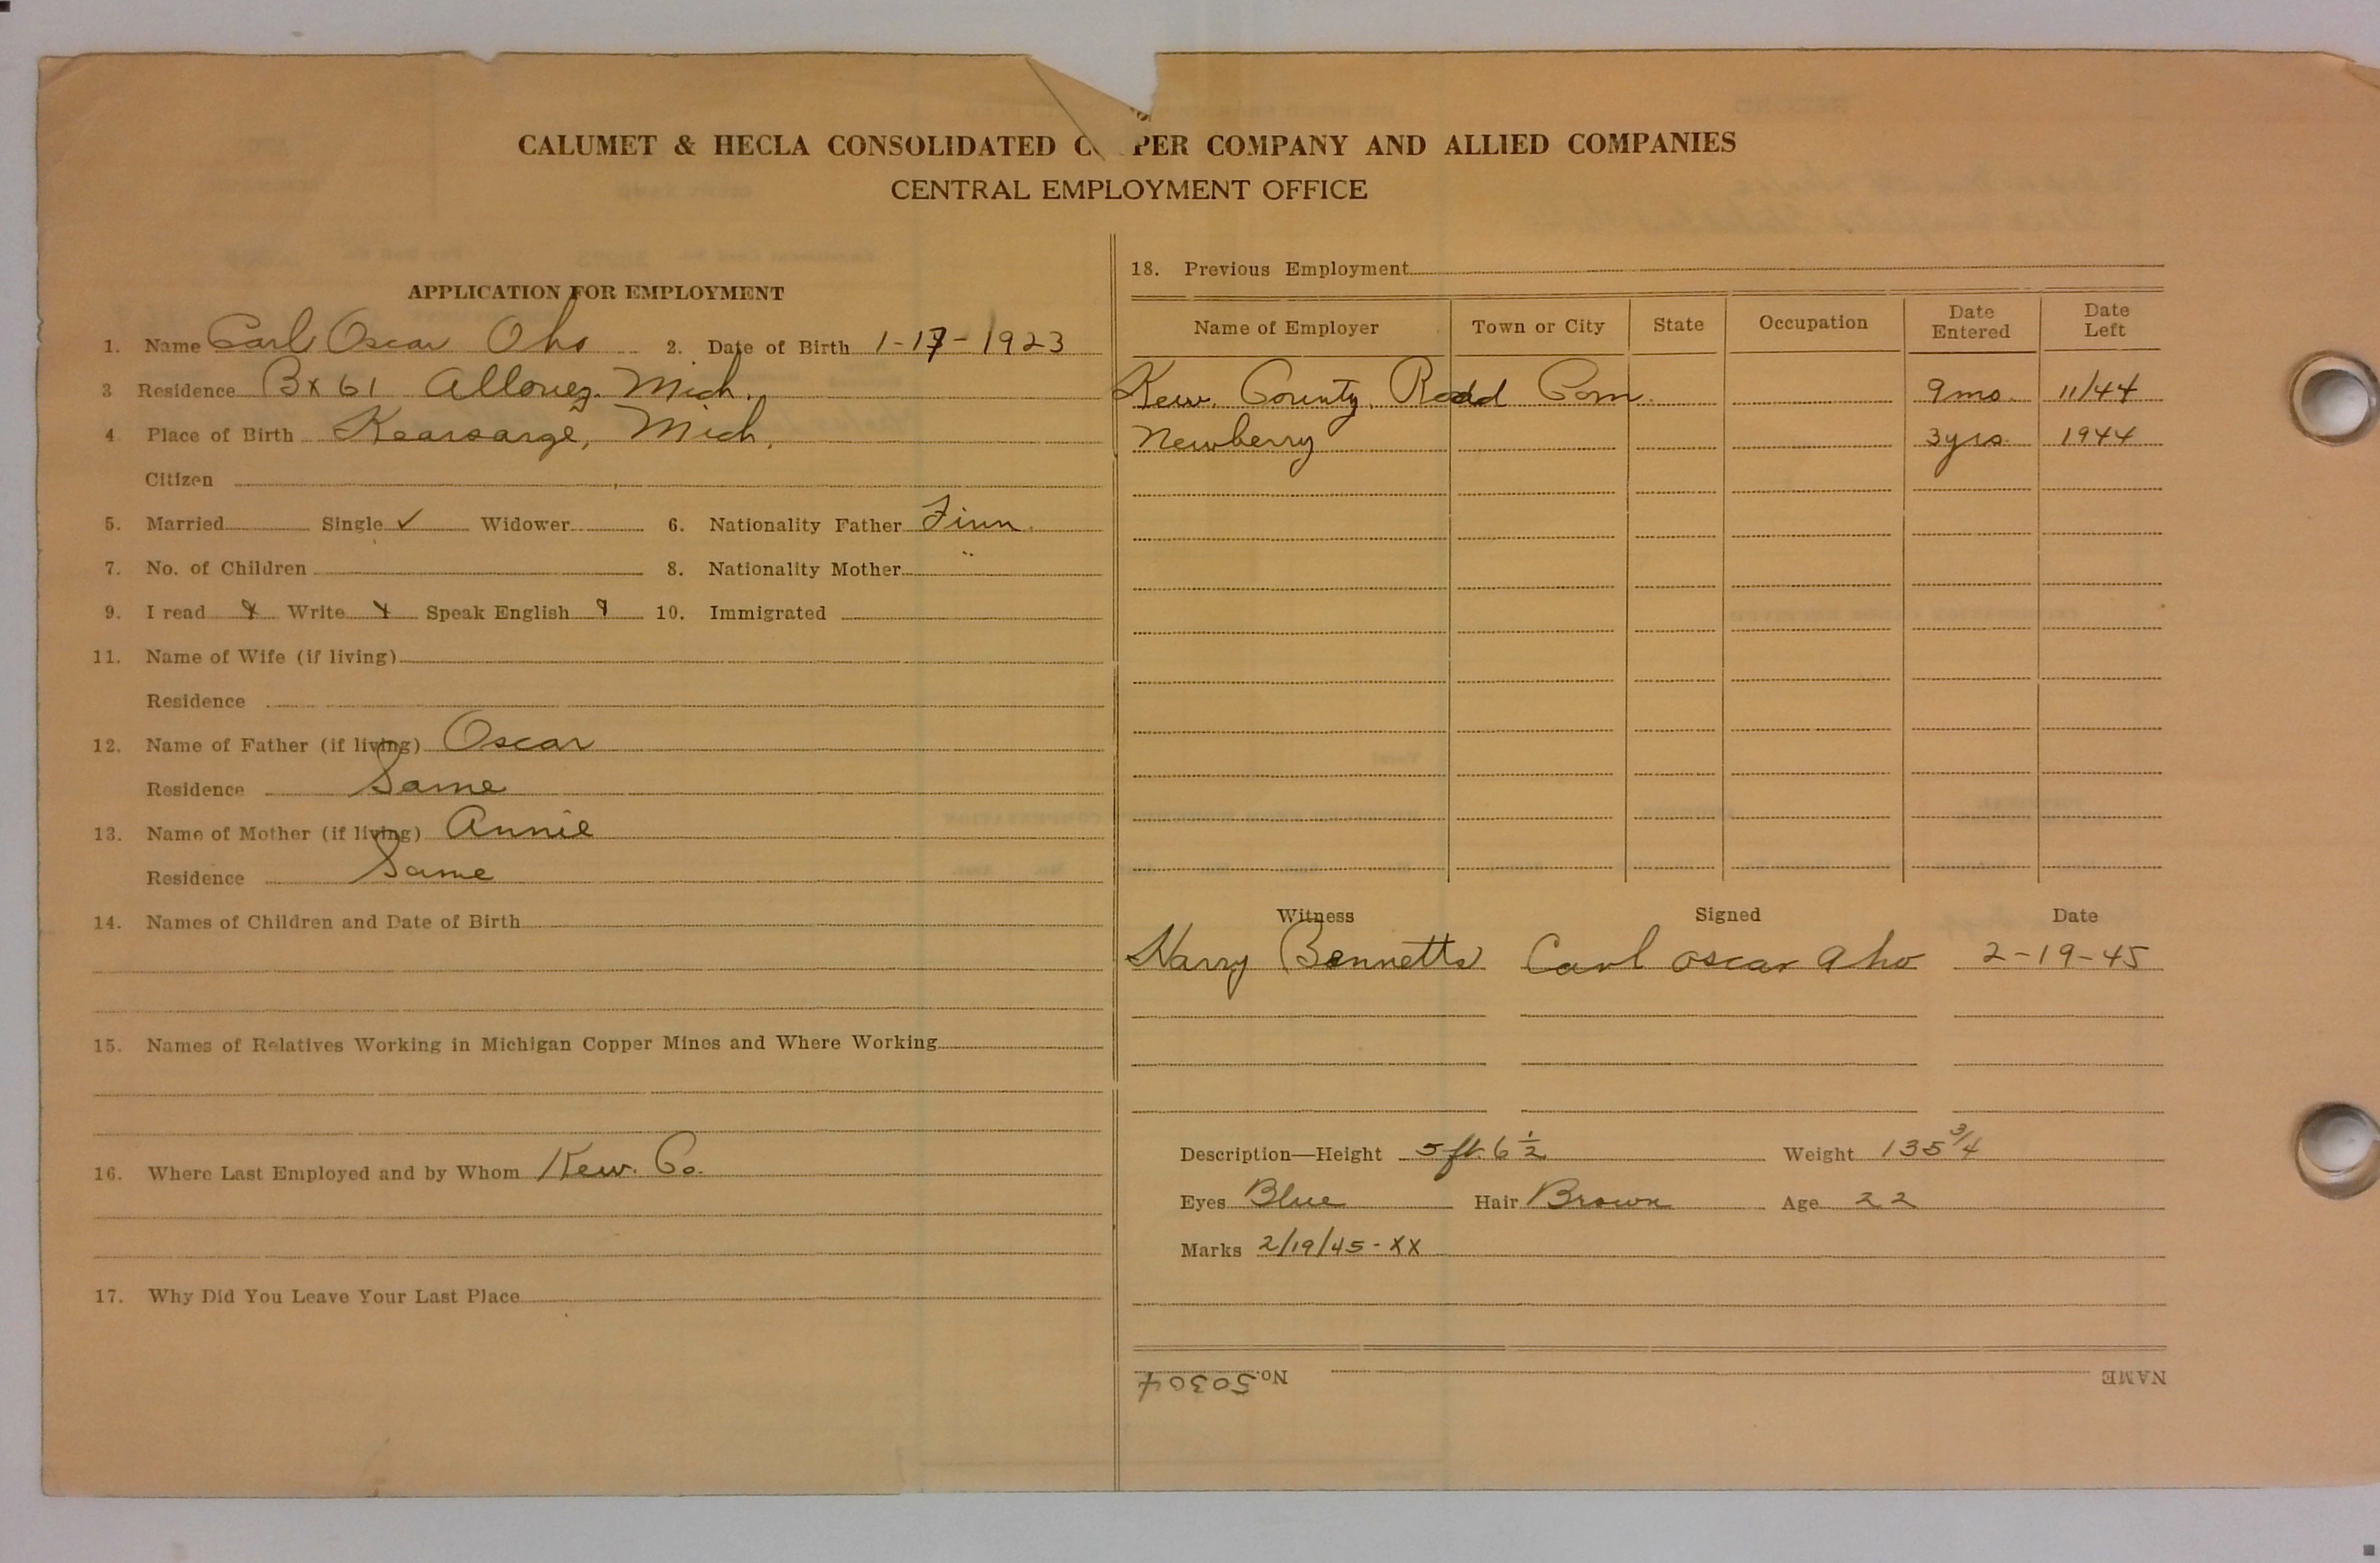 CALUMET & HECLA CONSOLIDATED C PER COMPANY AND ALLIED COMPANIES
CENTRAL EMPLOYMENT OFFICE
APPLICATION FOR EMPLOYMENT
1. Name Carl Oscar Aho 2. Date of Birth 1-17-1923
3 Residence Bx 61 Allouez. Mich.
4 Place of Birth Kearsarge, Mich.
Citizen
5. Married Single ✓ Widower 6. Nationality Father Finn.
7. No. of Children 8. Nationality Mother "
9. I read Write Speak English 10. Immigrated
11. Name of Wife (if living)
Residence
12. Name of Father (if living) Oscar
Residence Same
13. Name of Mother (if living) Annie
Residence Same
14. Names of Children and Date of Birth
15. Names of Relatives Working in Michigan Copper Mines and Where Working
16. Where Last Employed and by Whom Kew. Co.
17. Why Did You Leave Your Last Place
18. Previous Employment
Name of Employer Town or City State Occupation Date Entered Date Left
Kew. County. Rodd Com. 9 mo. 11/44
Newberry 3 yrs. 1944
Witness Signed Date
Harry Bennetts Carl Oscar Aho 2-19-45
Description—Height 5 ft. 6 1/2 Weight 135 3/4
Eyes Blue Hair Brown Age 22
Marks 2/19/45 - XX
NAME No. 50304